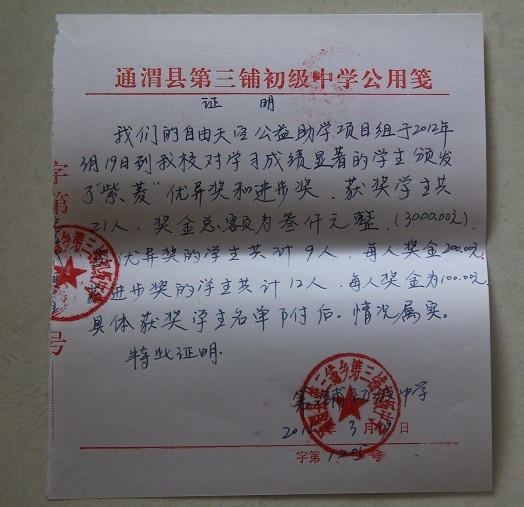 通渭县第三铺初级中学公用笺
证 明
我们的自由天空公益助学项目组于2012年
3月19日到我校对学习成绩显著的学生颁发
了"紫菱"优异奖和进步奖。获奖学生共
21人，奖金总额为叁仟元整（3000.00元）.
优异奖的学生共计9人，每人奖金200.00元.
进步奖的学生共计12人，每人奖金为100.00元.
具体获奖学生名单附后。情况属实。
特此证明.
第三铺初级中学
2012年3月19日
字第1205号
字第
号